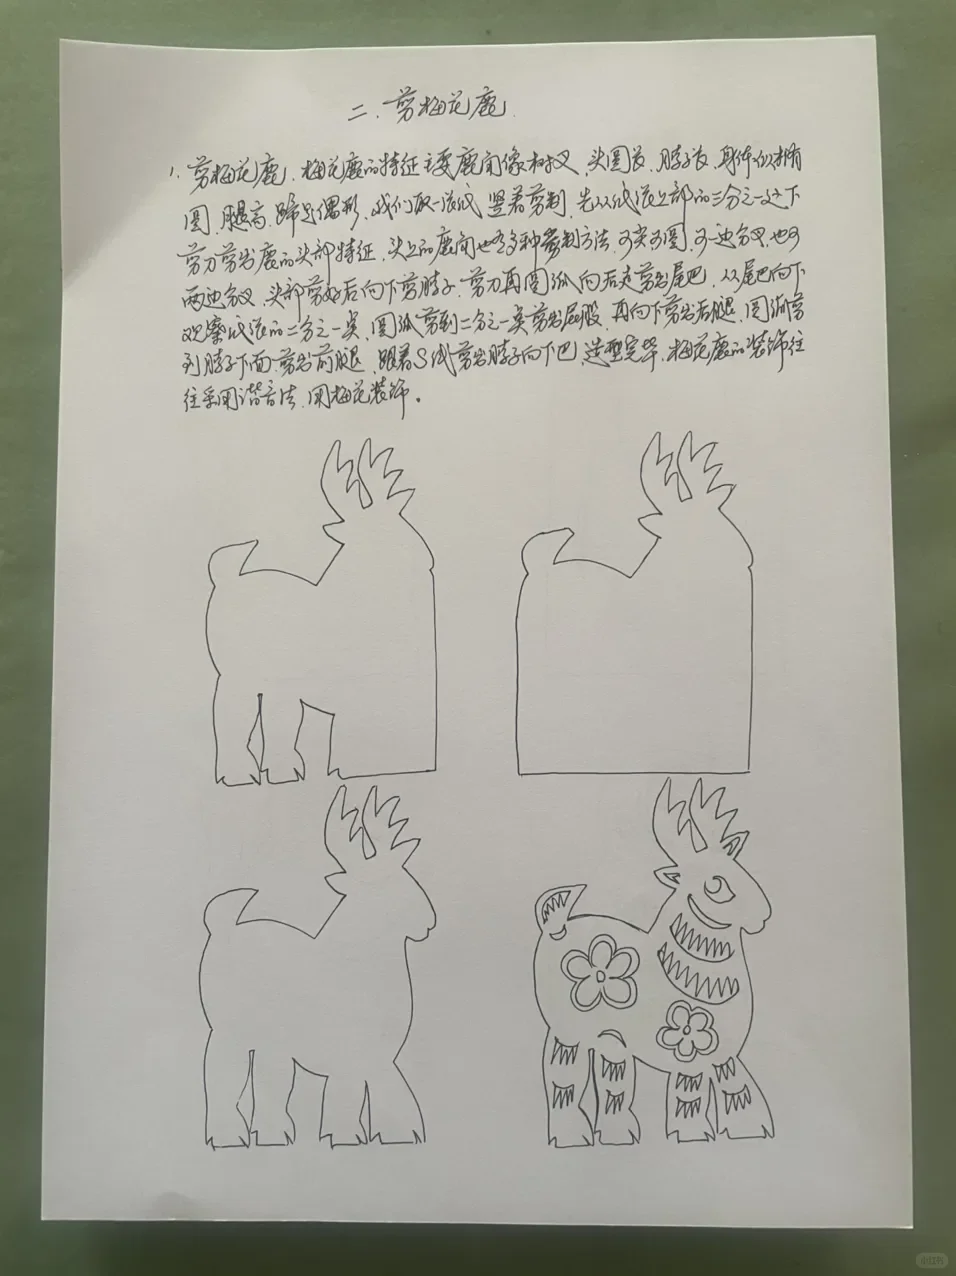 二.剪梅花鹿
1.剪梅花鹿.梅花鹿的特征主要鹿角像树叉,头圆长.脖子长.身体似椭有
圆.腿高.蹄足偶形.我们取一张纸竖着剪制.先从纸张上部的三分之一处下
剪刀剪出鹿的头部特征.头上的鹿角也有多种剪制方法.可尖可圆.可一边分叉.也可
两边分叉.头部剪好后向下剪脖子.剪刀再圆弧向后去剪出尾巴.从尾巴向下
观察纸张的二分之一类.圆弧剪到二分之一类剪出屁股.再向下剪出后腿.圆弧剪
到脖子下面.剪出前腿.跟着S线剪出脖子向下巴.造型完毕.梅花鹿的装饰往
往采用谐音法.用梅花装饰。
小红书